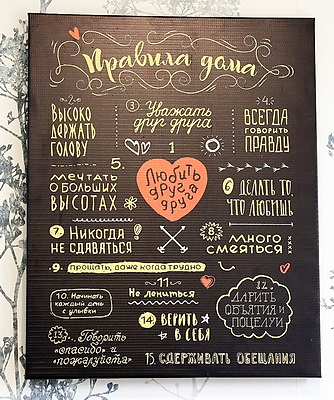 Правила дома
2.
ВЫСОКО
ДЕРЖАТЬ
ГОЛОВУ
3. Уважать
друг друга
4.
ВСЕГДА
ГОВОРИТЬ
ПРАВДУ
1
Любить
друг
друга
5.
МЕЧТАТЬ
О БОЛЬШИХ
ВЫСОТАХ
6. ДЕЛАТЬ ТО,
ЧТО ЛЮБИШЬ
7. НИКОГДА
НЕ СДАВАТЬСЯ!
8.
МНОГО
СМЕЯТЬСЯ
9. ПРОЩАТЬ, ДАЖЕ КОГДА ТРУДНО
10. Начинать
каждый день
с улыбки
11
Не лениться
12.
ДАРИТЬ
ОБЪЯТИЯ И
ПОЦЕЛУИ
13. Говорить
"спасибо" и
"пожалуйста"
14. ВЕРИТЬ
В СЕБЯ
15. СДЕРЖИВАТЬ ОБЕЩАНИЯ